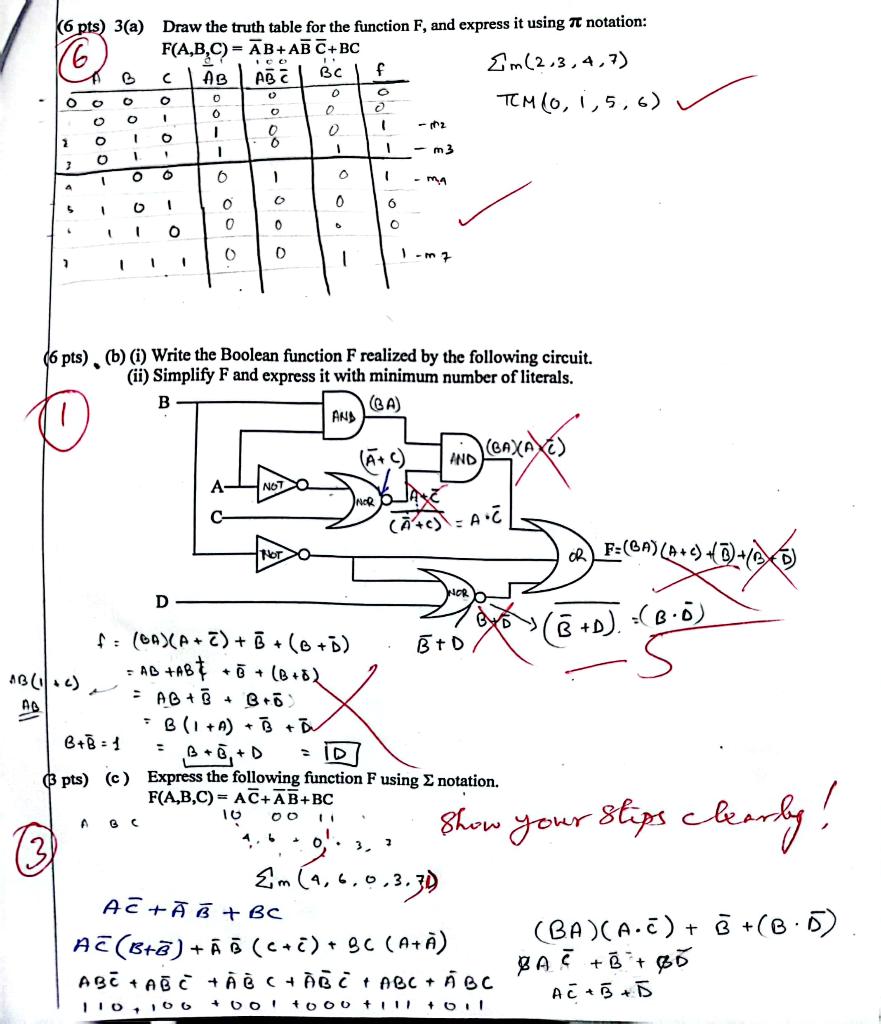 (6 pts) 3(a) Draw the truth table for the function F, and express it using π notation:
F(A,B,C) = A̅B + AB̅C̅ + BC
6
Σm(2,3,4,7)
πM(0,1,5,6)
A B C A̅B AB̅C̅ BC f
0 0 0 0 0 0 0 0
0 0 1 0 0 0 0
2 0 1 0 1 0 0 1 - m2
3 0 1 1 1 0 1 1 - m3
4 1 0 0 0 1 0 1 - m4
5 1 0 1 0 0 0 0
6 1 1 0 0 0 0 0
7 1 1 1 0 0 1 1 - m7
(6 pts) (b) (i) Write the Boolean function F realized by the following circuit.
(ii) Simplify F and express it with minimum number of literals.
1
B AND (BA)
(A̅+C) AND (BA)(A+C̅)
A NOT NOR A+C̅
C (A̅+C) = A·C̅
NOT OR F=(BA)(A+C)+(B̅)+(B+D̅)
NOR
D B+D̅ (B̅+D) = (B·D̅)
B̅+D
-5
f = (BA)(A+C̅) + B̅ + (B+D̅)
AB(1+C) = AB + ABC̅ + B̅ + (B+D̅)
AB = AB + B̅ + B+D̅
= B(1+A) + B̅ + D̅
B+B̅=1 = B+B̅+D = D
(3 pts) (c) Express the following function F using Σ notation.
F(A,B,C) = AC̅ + A̅B̅ + BC
A B C 10 00 11
4, 6 0, 1, 3, 7
Show your steps clearly!
3
Σm(4,6,0,3,7,1)
AC̅ + A̅B̅ + BC
AC̅(B+B̅) + A̅B̅(C+C̅) + BC(A+A̅)
ABC̅ + AB̅C̅ + A̅B̅C + A̅B̅C̅ + ABC + A̅BC
110, 100 + 001 + 000 + 111 + 011
(BA)(A·C̅) + B̅ + (B·D̅)
BAC̅ + B̅ + BD̅
AC̅ + B̅ + D̅